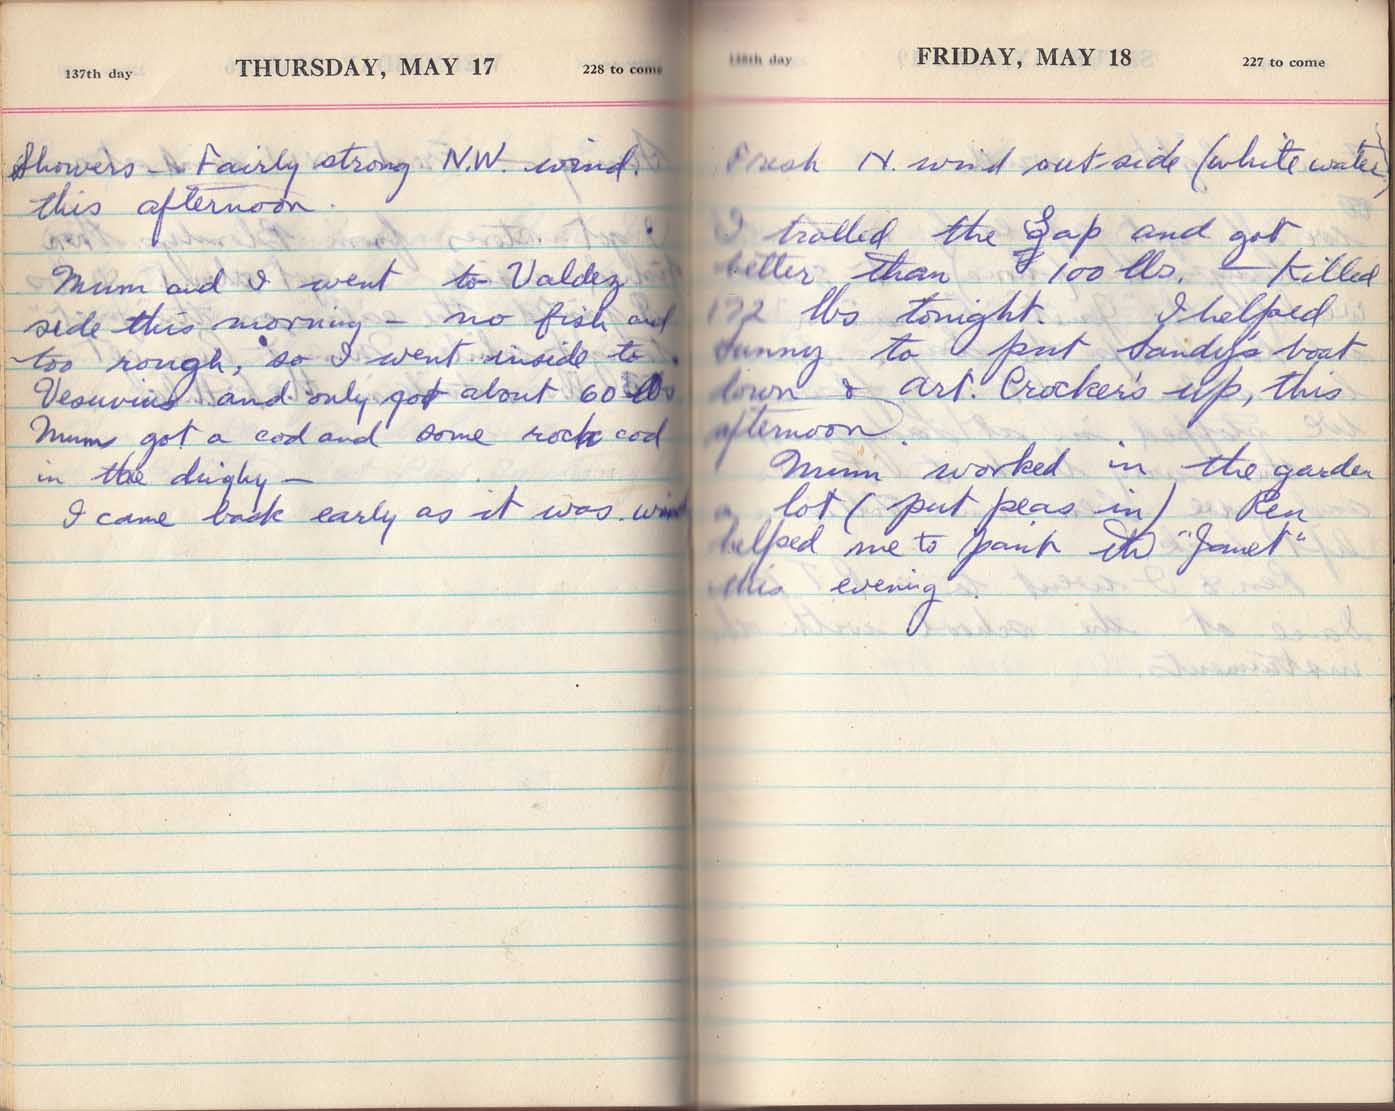 137th day THURSDAY, MAY 17 228 to come
Showers - Fairly strong N.W. wind.
this afternoon.
Mum and I went to Valdez
side this morning - no fish and
too rough, so I went inside to
Vesuvius and only got about 60 lbs
Mum got a cod and some rock cod
in the dinghy -
I came back early as it was windy
138th day FRIDAY, MAY 18 227 to come
Fresh N. wind outside (white water)
I trolled the Gap and got
better than 100 lbs. - Killed
172 lbs tonight. I helped
Sunny to put Sandy's boat
down & Art. Crocker's up, this
afternoon.
Mum worked in the garden
a lot (put peas in) Pen
helped me to paint the "Janet"
this evening